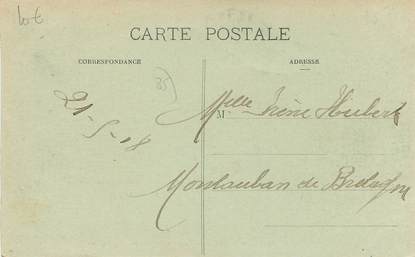 CARTE POSTALE
CORRESPONDANCE
ADRESSE
35
21-5-18
Mlle Irène Hubert
M
Montauban de Bretagne